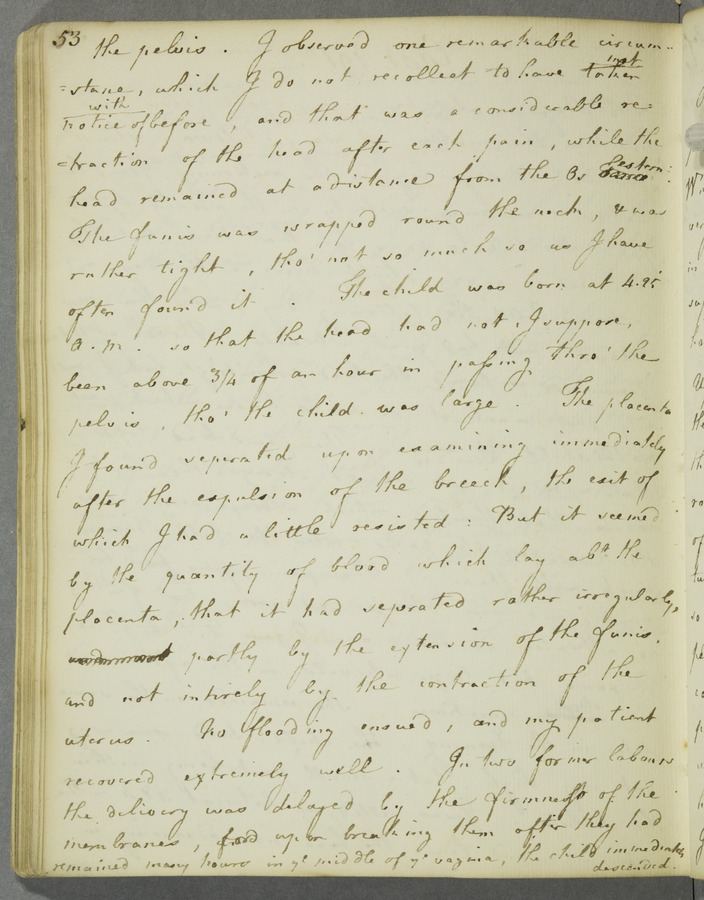 53
the pelvis. I observed one remarkable circum=
=stance, which I do not recollect to have met
with before, and that was a considerable re=
=traction of the head after each pain, while the
head remained at a distance from the Os extern:
The funis was wrapped round the neck, & was
rather tight, tho' not so much so as I have
often found it. The child was born at 4.25
a.m. so that the head had not, I suppose,
been above 3/4 of an hour in passing thro' the
pelvis, tho' the child was large. The placenta
I found seperated upon examining immediately
after the expulsion of the breech, the exit of
which I had a little resisted: But it seemed
by the quantity of blood which lay abt. the
placenta, that it had seprated rather irregularly,
partly by the extension of the funis,
and not intirely by the contraction of the
uterus. No flooding ensued, and my patient
recovered extremely well. In two former labours
the delivery was delayed by the firmness of the
membranes, and upon breaking them after they had
remained many hours in ye middle of ye vagina, the child immediately
descended.